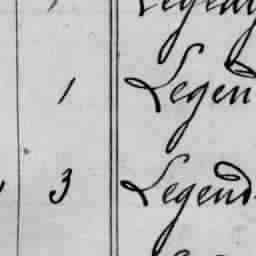 1 Legen
3 Legend